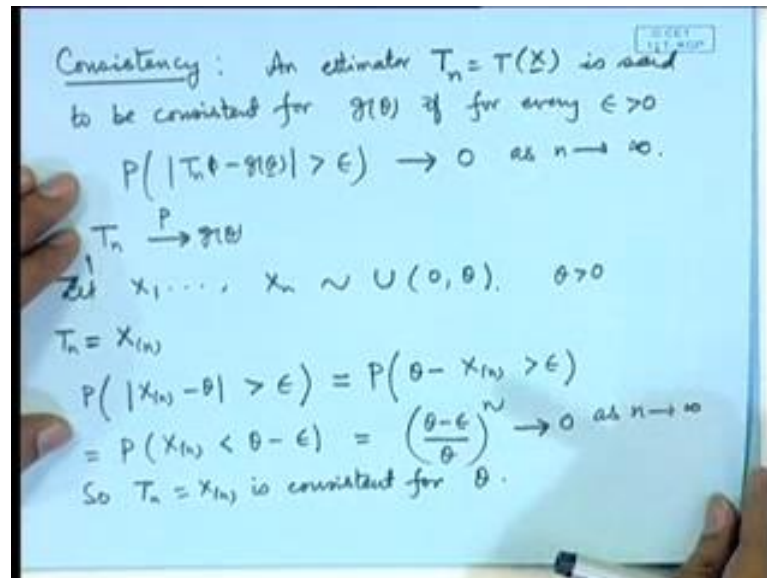 Consistency : An estimator Tₙ = T(X) is said
to be consistent for g(θ) if for every ϵ > 0
P( |Tₙ - g(θ)| > ϵ) → 0 as n → ∞.
Tₙ →ᴾ g(θ)
Let X₁ ...., Xₙ ~ U(0, θ). θ > 0
Tₙ = X₍ₙ₎
P( |X₍ₙ₎ - θ| > ϵ) = P(θ - X₍ₙ₎ > ϵ)
= P(X₍ₙ₎ < θ - ϵ) = ((θ-ϵ)/θ)ⁿ → 0 as n → ∞
So Tₙ = X₍ₙ₎ is consistent for θ.